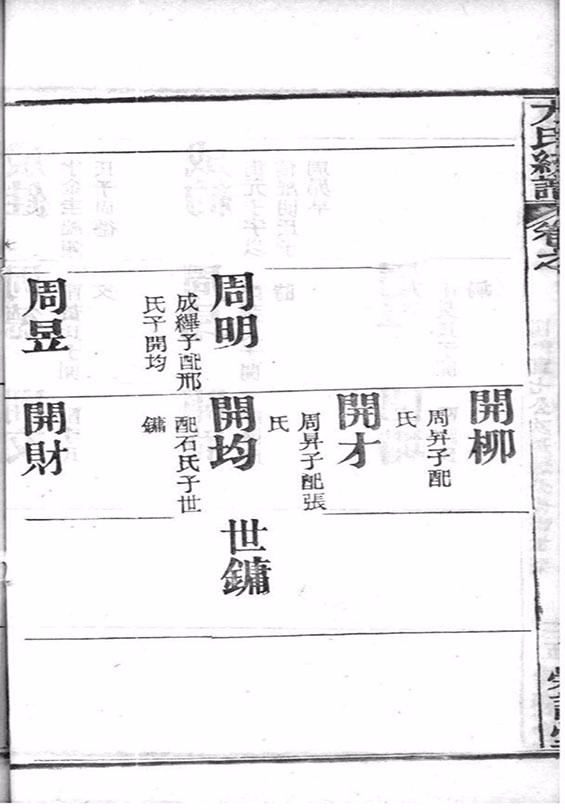 氏譜
卷之
周明
成子配邢
氏子開均
周昱
開柳
周昇子配
氏
開才
周昇子配張
氏
開均
配石氏子世
鏞
開財
世鏞